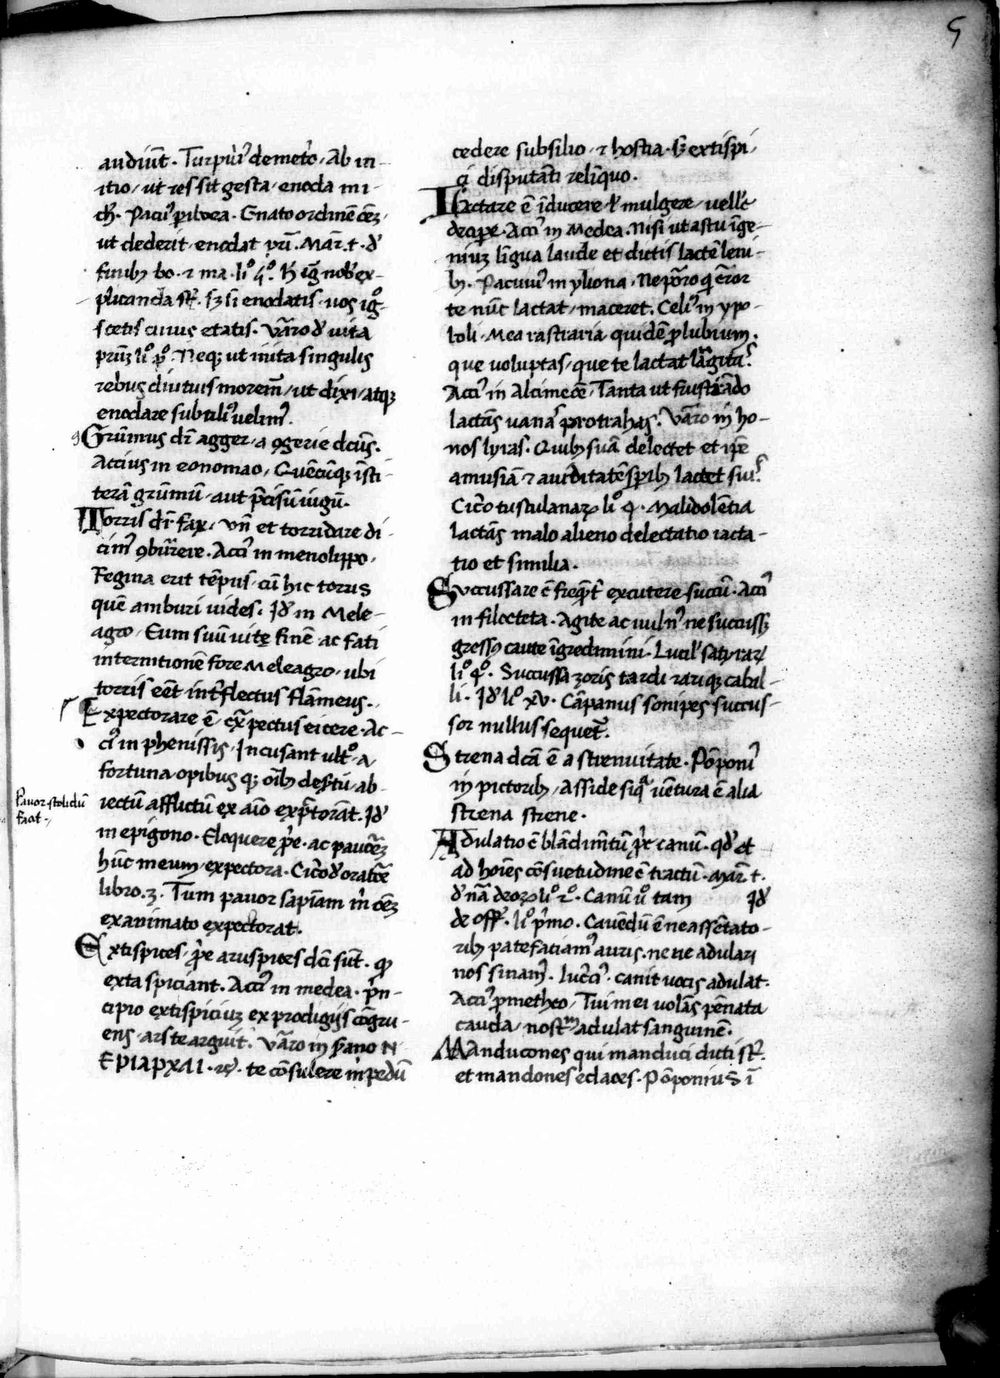 5
audiūt. Turpil' demetō. Ab in-
itio, ut res sit gesta, enoda mi-
ch'. Pacu' piboea. Gnato ordinē oēz,
ut dederit, enodat pr̄i. Mar. t. d'
finibꝫ bo. ⁊ ma. li° q°. h' igr̄ nob' ex-
plicanda st̄. Sꝫ si enodatis, uos ig°
scetis cuius etatis. Varo d' uita
prūz li° p°. Neqꝫ ut inita singulis
rebus diutius morem̄, ut dixi, atqꝫ
enodare subtili' uelim'.
Grūmus dr̄ agger, a ꝯgerie dctūs.
Accius in eonomao, Quēcūqꝫ īsti-
terā grūmū, aut p̄cisū iugū.
Torris dr̄ fax, Vn̄ et torridare di-
cim' ꝯburere. Acci' in menolippo,
Regina erit tēpus, cū hic torris
quē amburi uides. Id' in Mele-
agro, Eum suū uitę finē ac fati
internitionē fore Meleagro, ubi
torris eēt int'flectus flāmeus.
Expectorare ē, ex̄ pectus eicere. Ac-
ci' in phenissis, Incusant ult°, a
fortuna opibus qꝫ oībꝫ desr̄tū, ab-
iectū afflictū ex aīo exp̄torāt. Id'
in epigono. Eloquere p̄pe, ac pauc̄ez
hūc meum expectora. Cic° d' oratōe
libro. 3. Tum pauor sapīam m̄ oēz
exanimato expectorat.
Pauor stolidū
facit.
Extispices, p̄pe aruspices dc̄i sūt. qꝫ
exta spiciant. Acci' in medea, p̄n-
cipio extispiciuꝫ ex prodigijs cōgru-
ens, ars te arguit. Varo in
ΕΡΙΑΡΧΑΙ. te cōsulere in pedū
cedere subsilio, ⁊ hostia. S; extispi-
ci disputāti relīquo.
Lactare ē īducere l' mulgere, uell'e
decipe. Acci' in Medea. Nisi ut astu īge-
niuꝫ līgua laude et dictis lactē leni-
bꝫ. Pacuui' in yliona, Ne pōro q̄ error
te nūc lactat, maceret. Celi' in ypo-
boli. Mea rastraria, quidē plubium.
que voluptas, que te lactat
Acci' in Alcimeōe, Tanta ut frustrādo
lactās uana protrahas. Varo in ho-
nos lyras. Quibꝫ suā delectet et ip̄e
amusiā ⁊ auiditatē sp̄ibꝫ lactet sui'
Cic° tusculanarꝝ li° q. Maliuolētia
lactās malo alieno delectatio iacta-
tio et similia.
Succussare ē freq̄t' excutere succū. Acci'
in filocteta. Agite ac uuln' ne succussꝫ
gressꝫ caute īgredimini. Lucil' satyrarꝝ
li° q°. Succussatoris tardi rariqꝫ cabal-
li. Id' li° xv. Cāpanus sonipes succus-
sor nullus sequet̄.
Strena dc̄a ē a strenuitate. Pōponi'
in pictoribꝫ, Asside siqꝫ uētura ē alia
strena strene.
Adulatio ē blādimētū p̄pe canū. qd' et
ad hoīes cōsuetudine ē tractū. Mar. t.
d' nā deorꝝ li° 2°. Canū u° tam Id'
de off'. li° p'mo. Cauēdū ē ne assētato-
ribꝫ patefaciam' auris, neue adulari
nos sinam'. Luc̄ci'. canit uocis adulat.
Acci' pmetheo, Tui mei uolās pēnata
cauda, nost̄m adulat sanguinē.
Manducones qui manduci dicti st̄.
et mandones edaces. Pōponius ī